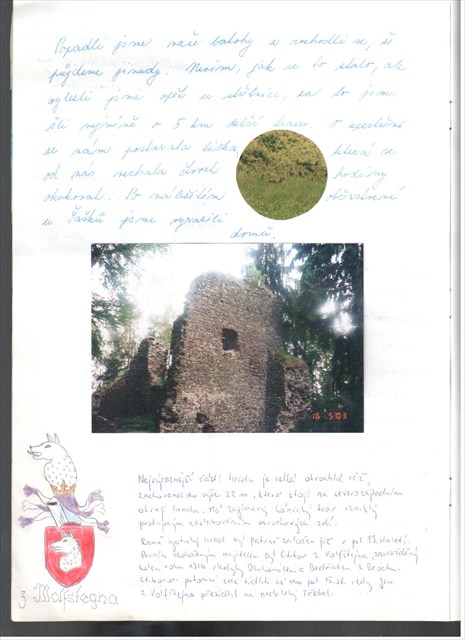 Popadli jsme naše batohy a rozhodli se, že
půjdeme jinudy. Nevím, jak se to stalo, ale
vylezli jsme opět u silnice, za to jsme
šli nejméně o 5 km delší trasu. O zpestření
se nám postarala liška, která se
od nás nechala čtvrt hodiny
okukovat. Po náležitém občerstvení
u Šašků jsme vyrazili
domů.
16 5'03
Nejvýraznější částí hradu je velká okrouhlá věž,
zachovaná do výše 22 m, která stojí na severozápadním
okraji hradu. Má zajímavý kónický tvar vzniklý
postupným zeslabováním obvodových zdí.
Raně gotický hrad byl patrně založen již v pol. 13. století.
Prvním doloženým majitelem byl Ctibor z Volfštejna, zavražděný
kolem roku 1316 vladyky Oldřichem a Bedřichem z
Ctiborovi potomci zde sídlili až do pol. 15. st. kdy Jan
z Volfštejna přesídlil na nedaleký Třebel.
z Wolfstegna